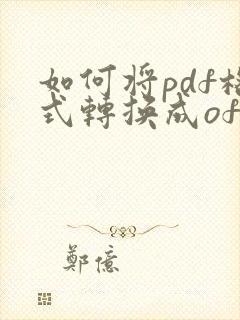 如何将pdf格
式轉換成of
鄭億